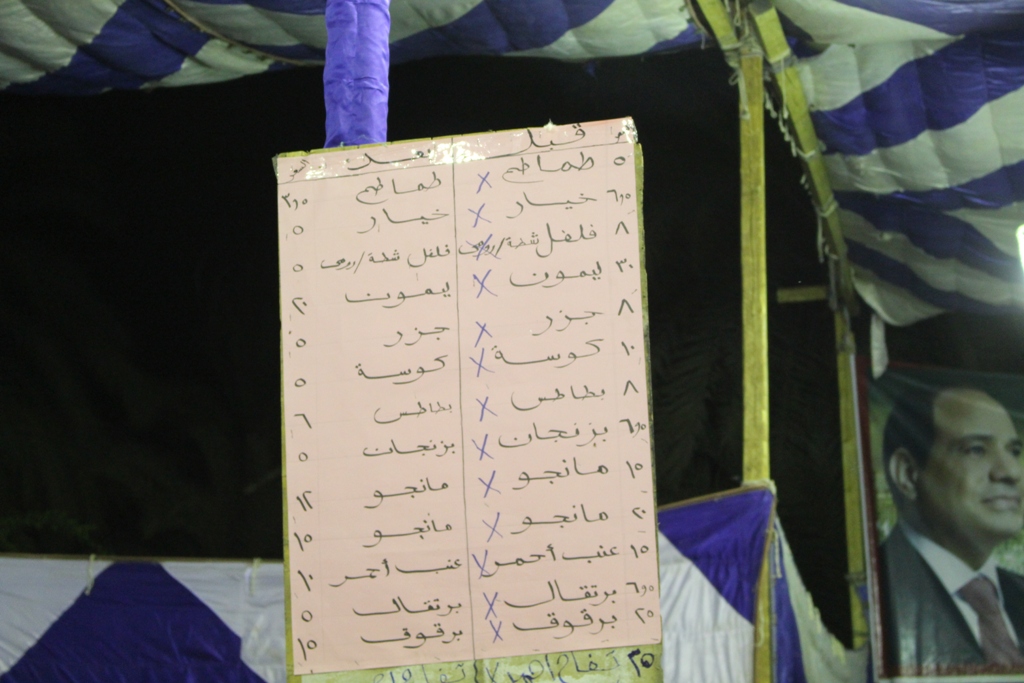 قبل بعد
٥ طماطم × طماطم ٣,٥
٦,٥ خيار × خيار ٥
٨ فلفل شطة/رومى × فلفل شطة/رومى ٥
٣٠ ليمون × ليمون ٢٠
٨ جزر × جزر ٥
١٠ كوسة × كوسة ٥
٨ بطاطس × بطاطس ٦
٦,٥ بزنجان × بزنجان ٥
١٥ مانجو × مانجو ١٢
٢٠ مانجو × مانجو ١٥
١٥ عنب أحمر × عنب أحمر ١٠
٦,٥ برتقال × برتقال ٥
٢٥ برقوق × برقوق ١٥
٢٥ تفاح احمر